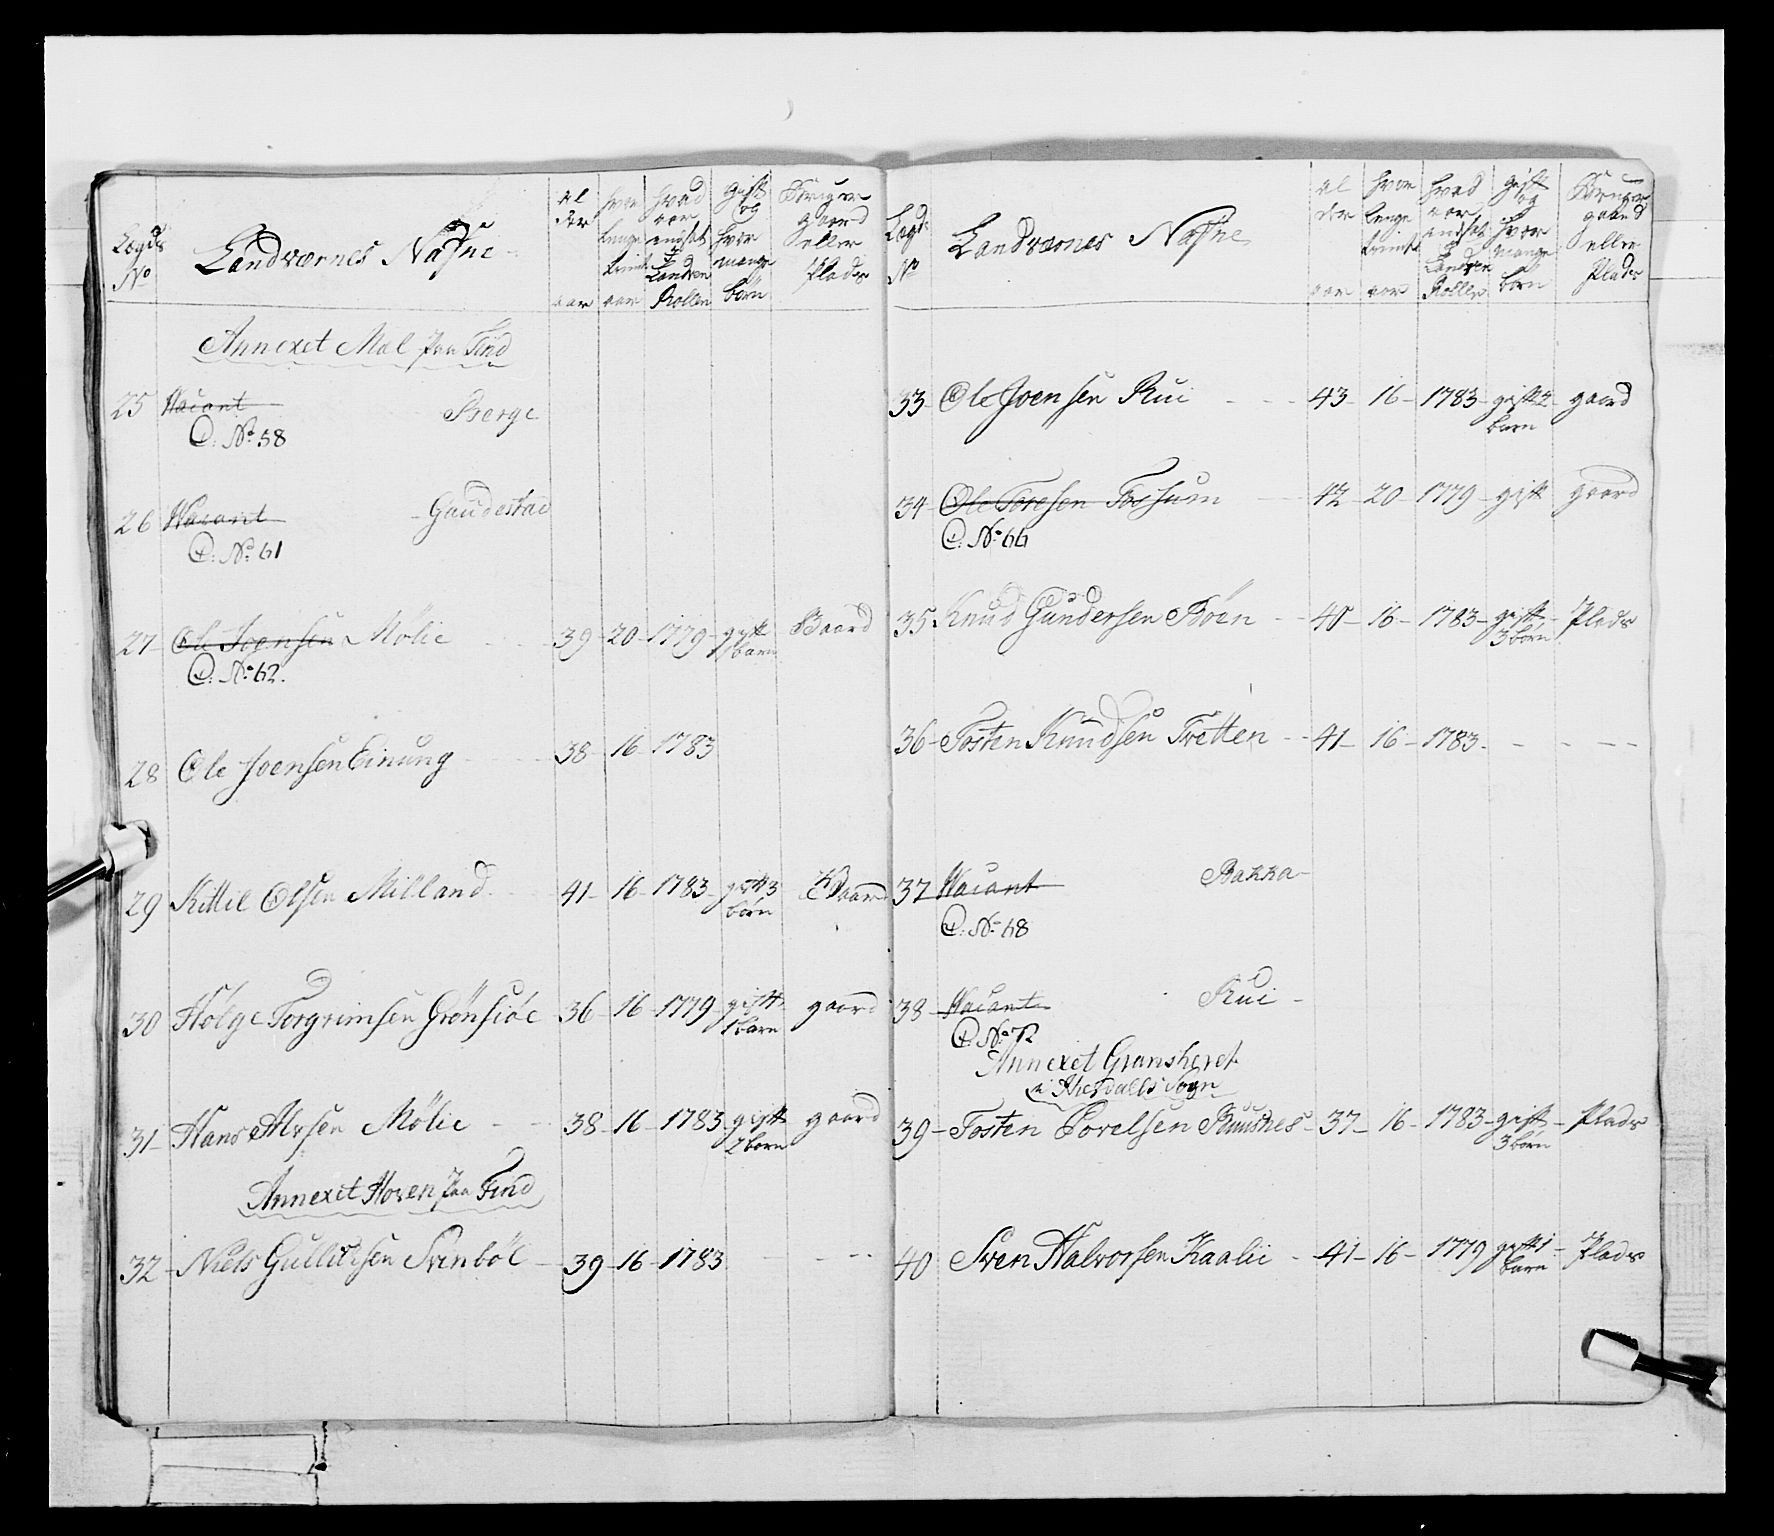 Lægds No
Landværnes Nafne
al der aar
hvor lenge tient aar
hvad aar andsat i Landværn Rollen
gift og hvor mange börn
Bruger gaard eller Plads
Annexet Mæl paa Tind
25 Vacant Berge
C: No 58
26 Vacant - Gaudestad
C: No 61
27 Ole Joensen Mölie 39 - 20 - 1779 - gift 1 barn Gaard
C: No 62.
28 Ole Joensen Einung 38 - 16 - 1783
29 Kittil Olsen Milland 41 - 16 - 1783 - gift 3 börn Gaard
30 Hölge Torgrimsen Grönsiöe 36 - 16 - 1779 - gift 1 barn gaard
31 Hans Alvsen Mölie 38 - 16 - 1783 gift 2 born gaard
Annexet Hoven paa Tind
32 - Niels Gullicksen Svinböl - 39 - 16 - 1783
Lægds No
Landværnes Nafne
al der aar
hvor lenge tient aar
hvad aar andsat i Landværn Rolle
gift og hvor mange börn
Bruger gaard eller Plads
33 - Ole Joensen Rui 43 - 16 - 1783 - gift 2 barn gaard
34 - Ole Toresen Fossum 42 - 20 - 1779 - gift gaard
C: No 66
35 Knud Gundersen Böen 40 - 16 - 1783 - gift 3 börn - Plads
36 - Tosten Knudsen Tvetten 41 - 16 - 1783 -
37 Vacant Bakka -
C: No 68
38 - Vacant Rui -
C: No 72
Annexet Gransheret
i Hierdals Sogn
39 - Tosten Torelsen Ruusnes 37 - 16 - 1783 - gift 3 börn - Plads
40 Sven Halvorsen Kaalie 41 - 16 - 1779 gift 1 barn - Plads